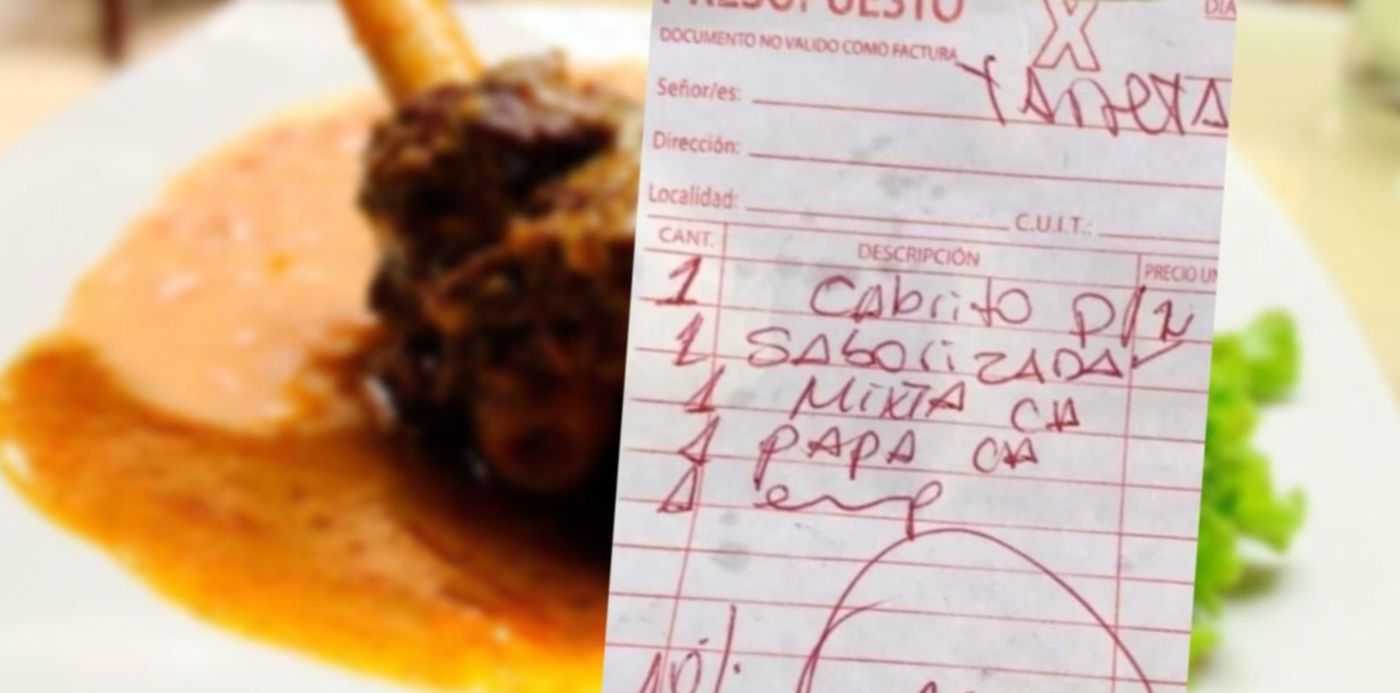 PRESUPUESTO X DIA
DOCUMENTO NO VALIDO COMO FACTURA
TARJETA
Señor/es:
Dirección:
Localidad: C.U.I.T.:
CANT. DESCRIPCIÓN PRECIO UN
1 CAbrito P/2
1 SAbORiZADA
1 MiXTA CH
1 PAPA CH
1 emp
10%